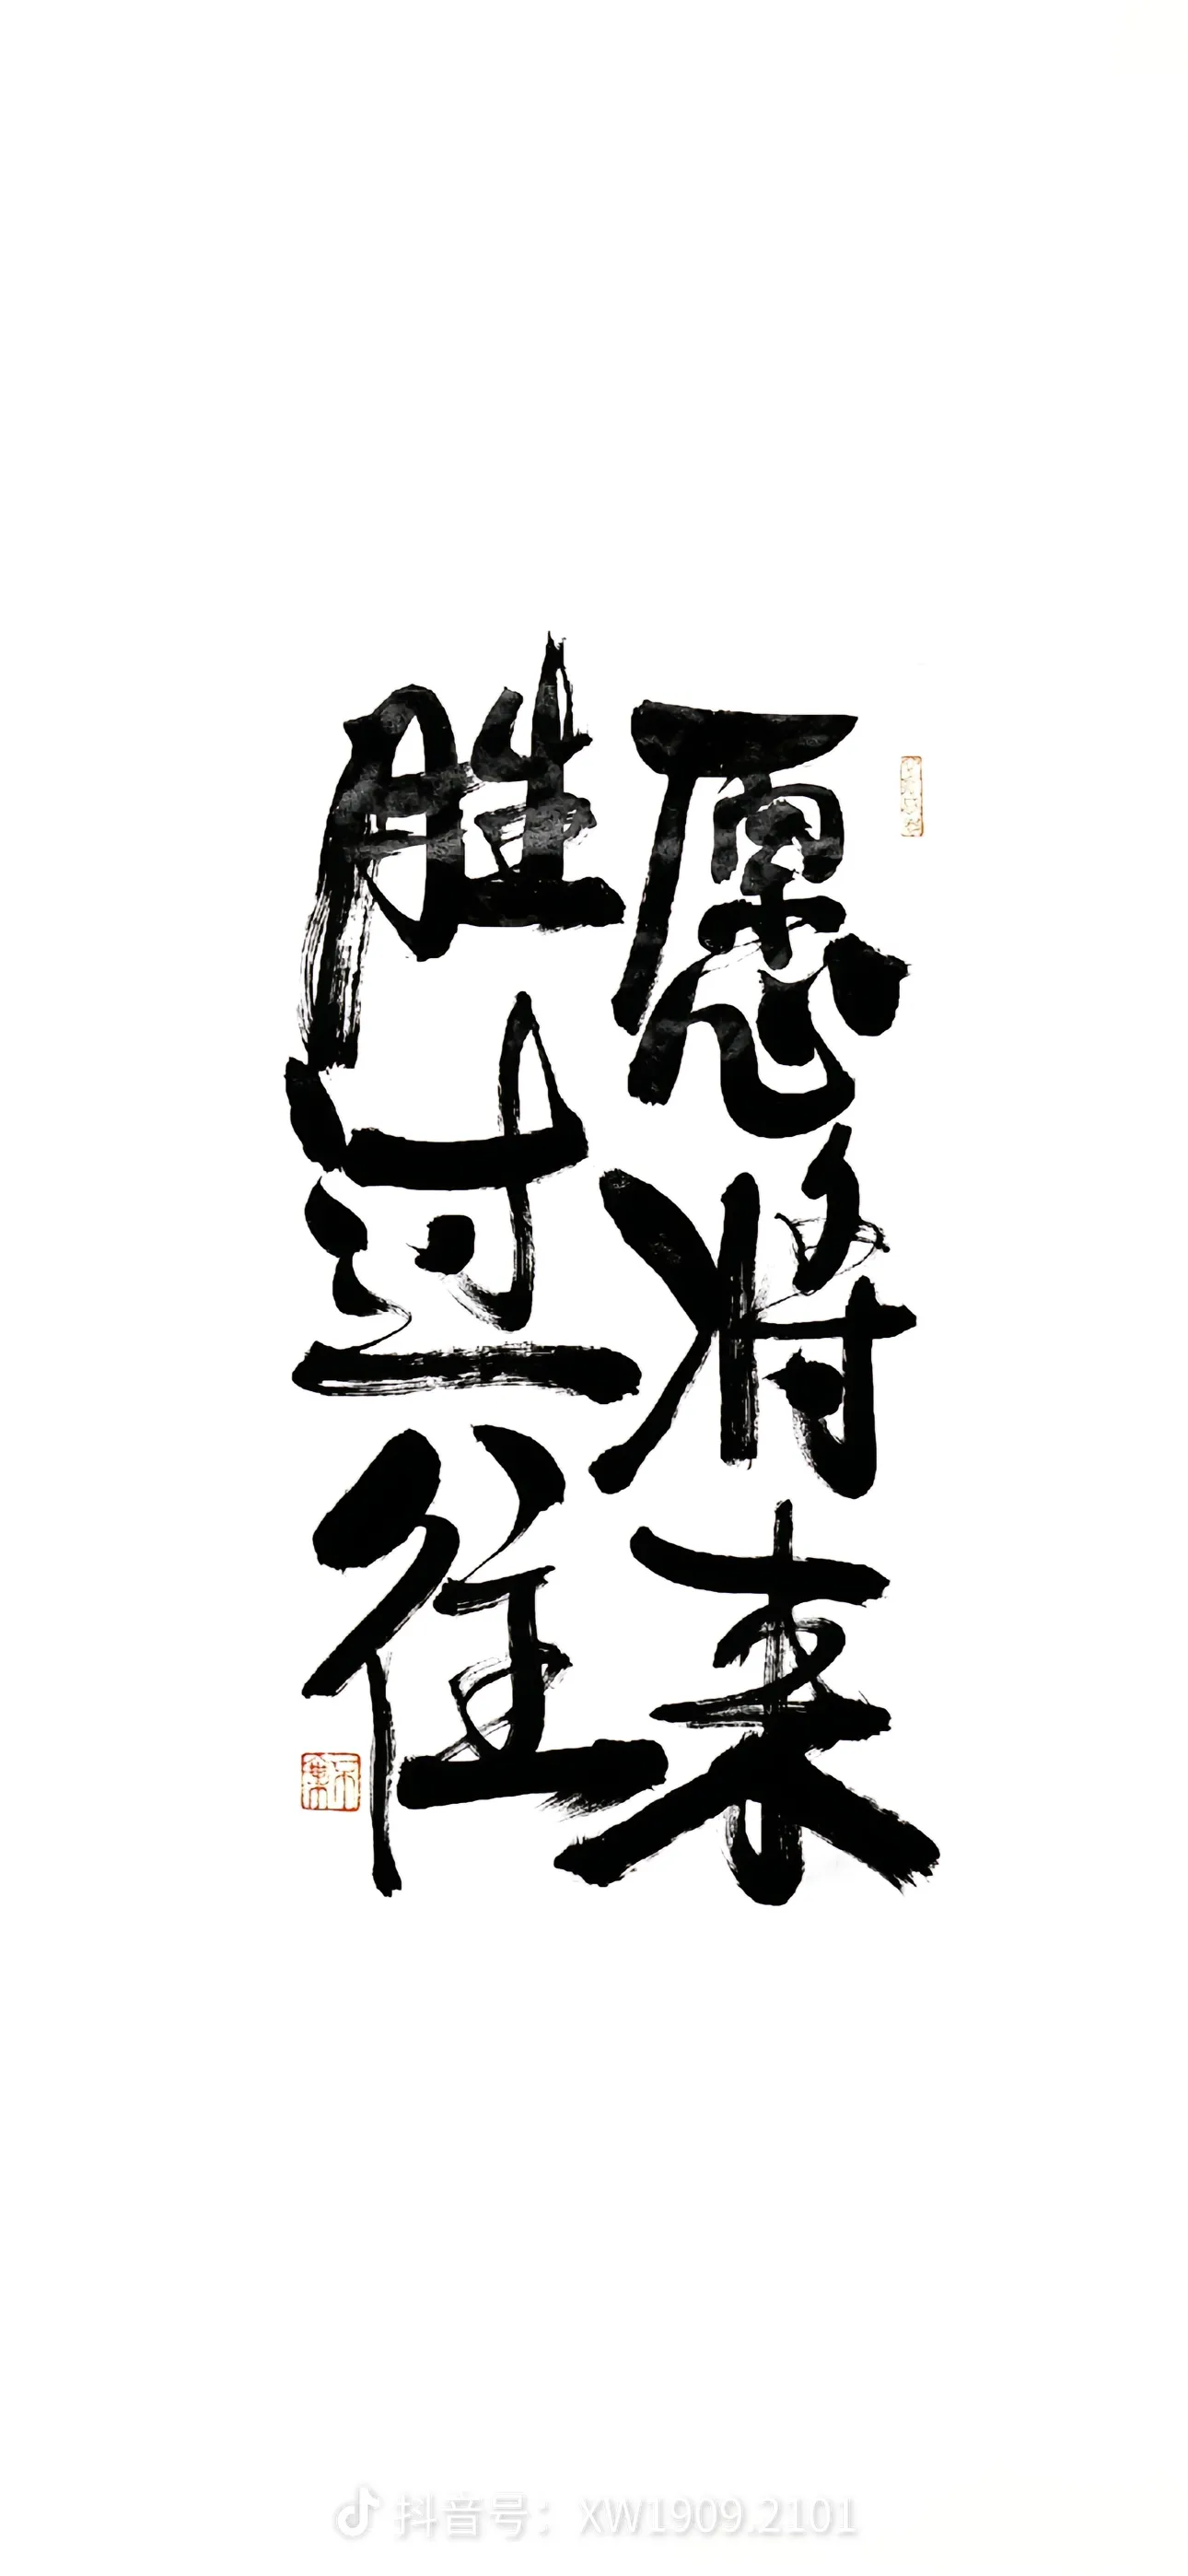 愿将来
胜过往
抖音号：XW1909.2101